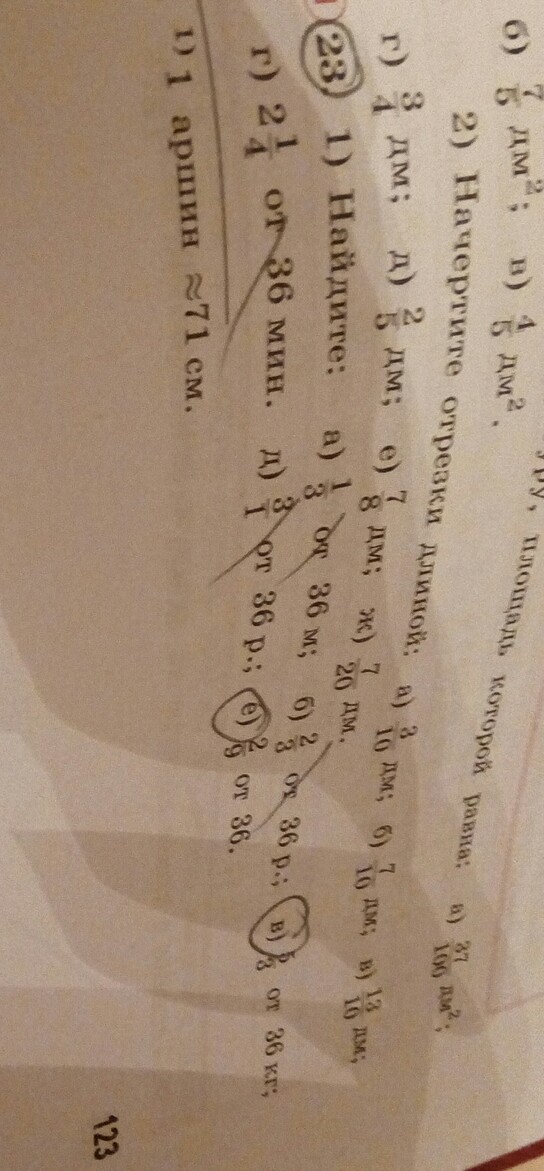 уру, площадь которой равна: а) 37/100 дм²;
б) 7/5 дм²; в) 4/5 дм².
2) Начертите отрезки длиной: а) 3/10 дм; б) 7/10 дм; в) 13/10 дм;
г) 3/4 дм; д) 2/5 дм; е) 7/8 дм; ж) 7/20 дм.
23. 1) Найдите: а) 1/3 от 36 м; б) 2/3 от 36 р.; в) 5/3 от 36 кг;
г) 2 1/4 от 36 мин. д) 3/1 от 36 р.; е) 2/9 от 36.
1) 1 аршин ≈71 см.
123